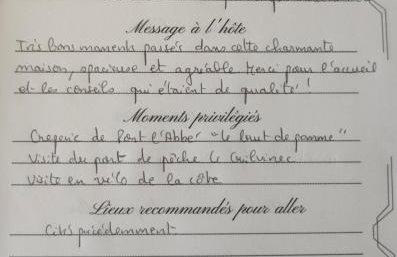 Message à l'hôte
Très bons moments passés dans cette charmante
maison, spacieuse et agréable Merci pour l'accueil
et les conseils qui étaient de qualité !
Moments privilégiés
Creperie de Pont l'Abbé "le bout de pomme"
Visite du port de pêche Le Guilvinec
Visite en vélo de la côte
Lieux recommandés pour aller
Cités précédemment